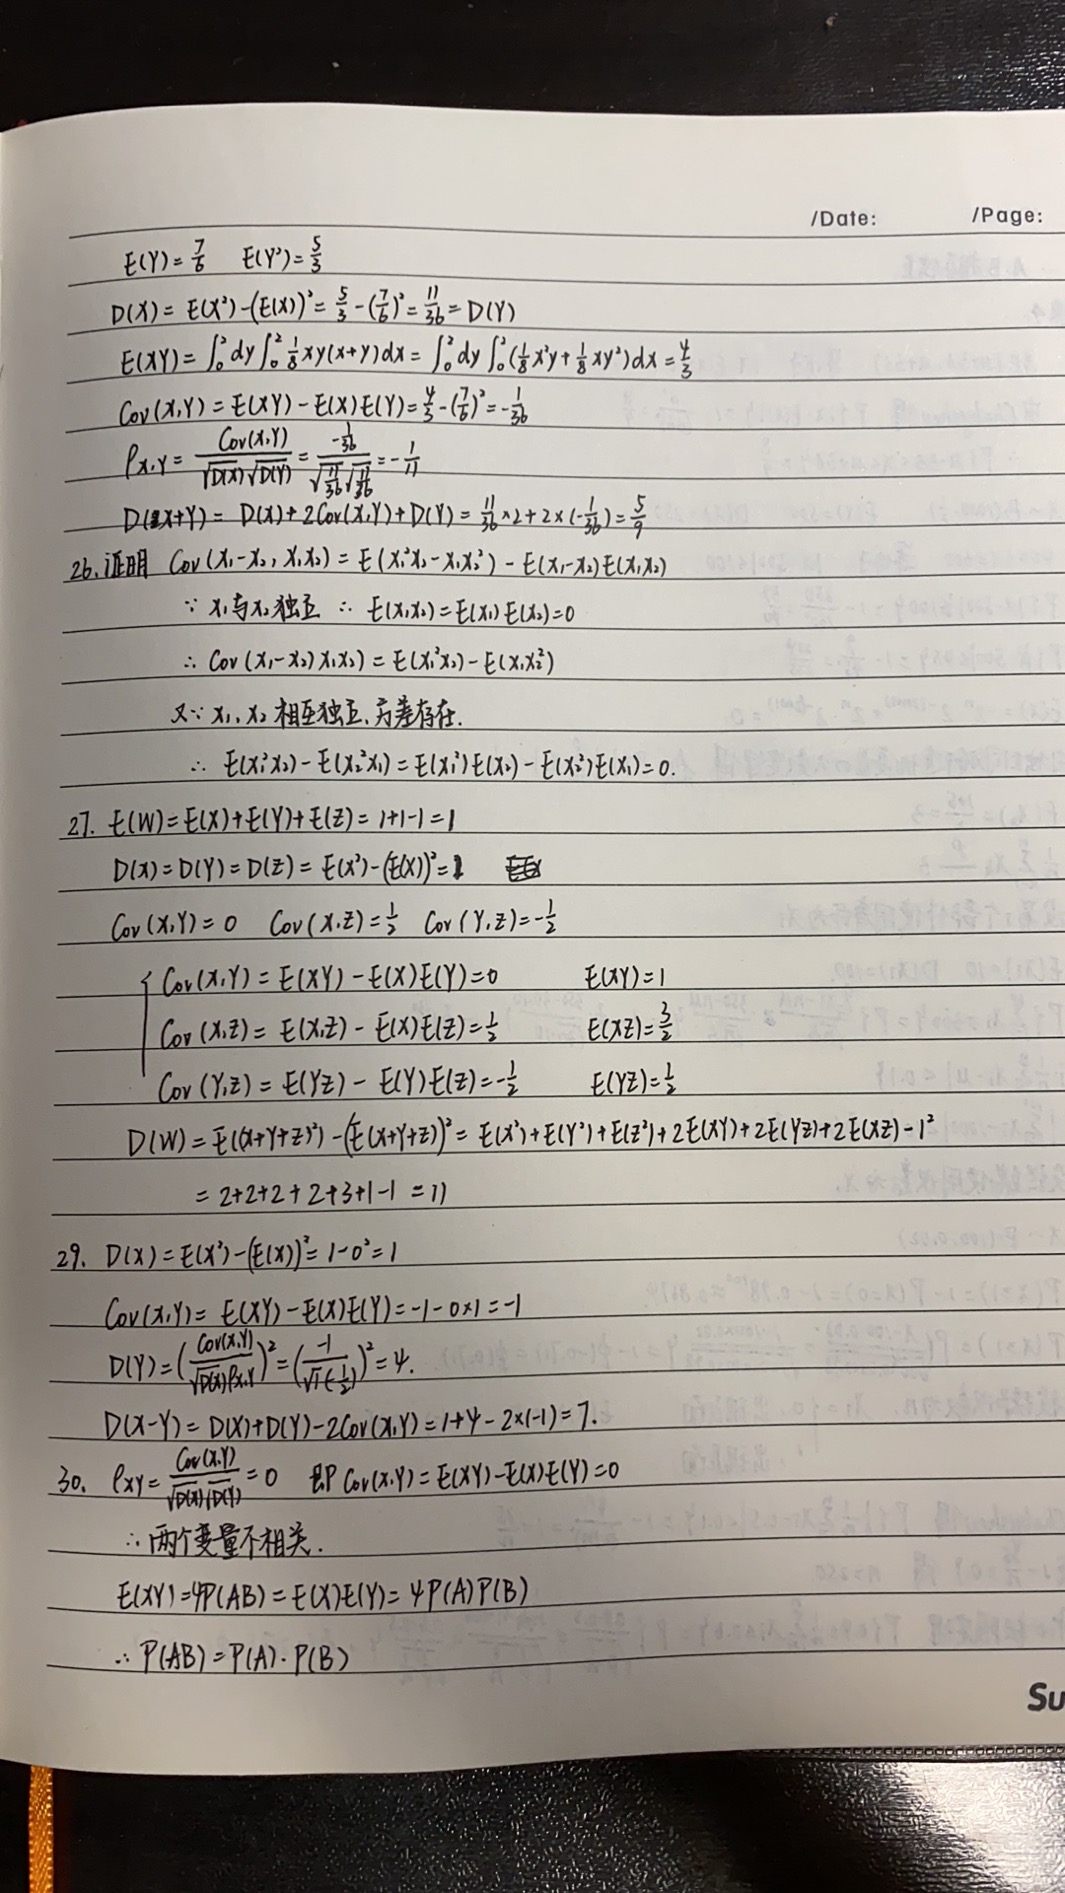 /Date: /Page:
E(Y)=7/6 E(Y²)=5/3
D(X)=E(X²)-(E(X))²=5/3-(7/6)²=11/36=D(Y)
E(XY)=∫₀²dy∫₀²1/8xy(x+y)dx=∫₀²dy∫₀²(1/8x²y+1/8xy²)dx=4/3
Cov(X,Y)=E(XY)-E(X)E(Y)=4/3-(7/6)²=-1/36
ρX,Y=Cov(X,Y)/√D(X)√D(Y)=-1/36/√11/36√11/36=-1/11
D(X+Y)=D(X)+2Cov(X,Y)+D(Y)=11/36×2+2×(-1/36)=5/9
26.证明 Cov(X₁-X₂,X₁X₂)=E(X₁²X₂-X₁X₂²)-E(X₁-X₂)E(X₁X₂)
∵X₁与X₂独立 ∴E(X₁X₂)=E(X₁)E(X₂)=0
∴Cov(X₁-X₂)X₁X₂)=E(X₁²X₂)-E(X₁X₂²)
又∵X₁,X₂相互独立,方差存在.
∴E(X₁²X₂)-E(X₂²X₁)=E(X₁²)E(X₂)-E(X₂²)E(X₁)=0.
27. E(W)=E(X)+E(Y)+E(Z)=1+1-1=1
D(X)=D(Y)=D(Z)=E(X²)-(E(X))²=1
Cov(X,Y)=0 Cov(X,Z)=1/2 Cov(Y,Z)=-1/2
{Cov(X,Y)=E(XY)-E(X)E(Y)=0 E(XY)=1
Cov(X,Z)=E(X,Z)-E(X)E(Z)=1/2 E(XZ)=3/2
Cov(Y,Z)=E(YZ)-E(Y)E(Z)=-1/2 E(YZ)=1/2
D(W)=E((X+Y+Z)²)-(E(X+Y+Z))²=E(X²)+E(Y²)+E(Z²)+2E(XY)+2E(YZ)+2E(XZ)-1²
=2+2+2+2+3+1-1=11
29. D(X)=E(X²)-(E(X))²=1-0²=1
Cov(X,Y)=E(XY)-E(X)E(Y)=-1-0×1=-1
D(Y)=(Cov(X,Y)/√D(X)ρX,Y)²=(-1/√1(-1/2))²=4.
D(X-Y)=D(X)+D(Y)-2Cov(X,Y)=1+4-2×(-1)=7.
30. ρXY=Cov(X,Y)/√D(X)√D(Y)=0 即Cov(X,Y)=E(XY)-E(X)E(Y)=0
∴两个变量不相关.
E(XY)=4P(AB)=E(X)E(Y)=4P(A)P(B)
∴P(AB)=P(A)·P(B)
Su